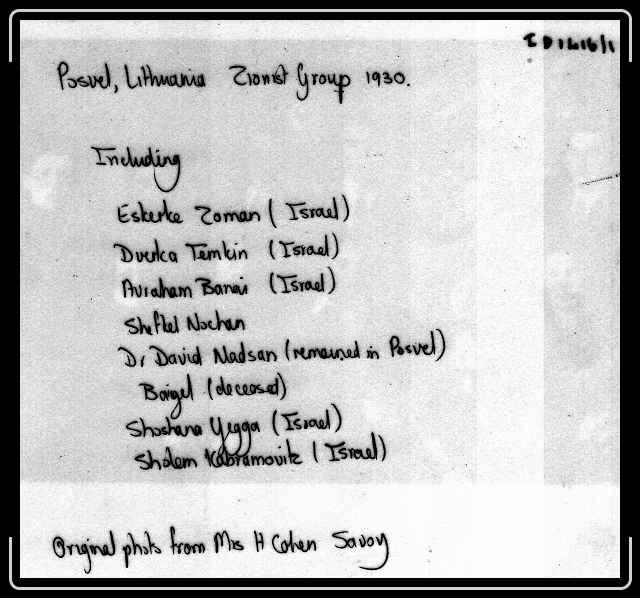 ID1616/1
Posvel, Lithuania Zionist Group 1930.
Including
Eskerke Zoman (Israel)
Dverka Temkin (Israel)
Avraham Banai (Israel)
Sheftel Nochan
Dr David Nadsan (remained in Posvel)
Baigel (deceased)
Shoshana Yegga (Israel)
Sholem Kabramovitz (Israel)
Original photo from Mrs H Cohen Savoy